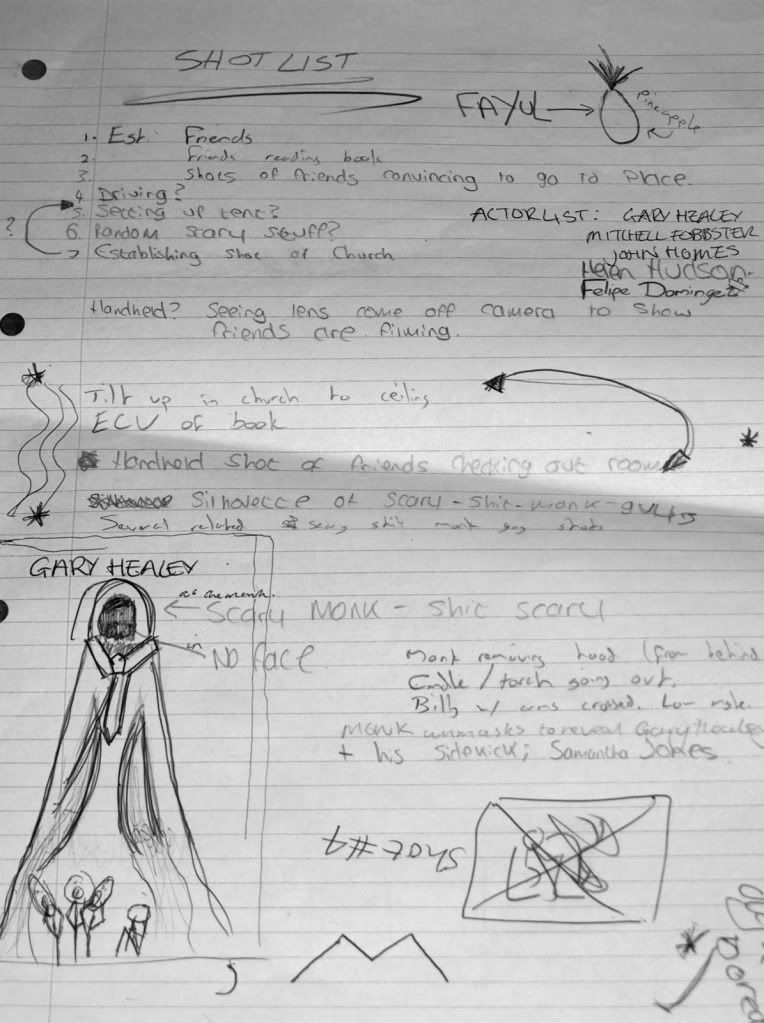 SHOT LIST
FAYUL
pineapple
1. Est: Friends
2. Friends reading book
3. Shots of friends convincing to go to place.
4. Driving?
5. Setting up tent?
?
6. Random scary stuff?
7 Establishing shot of Church
ACTOR LIST: GARY HEALEY
MITCHELL FOBBSTER
JOHN HOMES
Helen Hudson.
Felipe Domingez
Handheld? Seeing lens come off camera to show
friends are filming.
Tilt up in church to ceiling
ECU of book
Handheld shot of friends checking out room
Silhouette of scary-shit-monk-guys
Several related scary shit monk guy shots
GARY HEALEY
as the monk.
Scary MONK - shit scary
in
NO face
Monk removing hood (from behind
Candle / torch going out.
Billy w/ arms crossed. Low angle.
MONK unmasks to reveal Gary Healey
+ his sidekick; Samantha Jokes
SHOT #4
bored